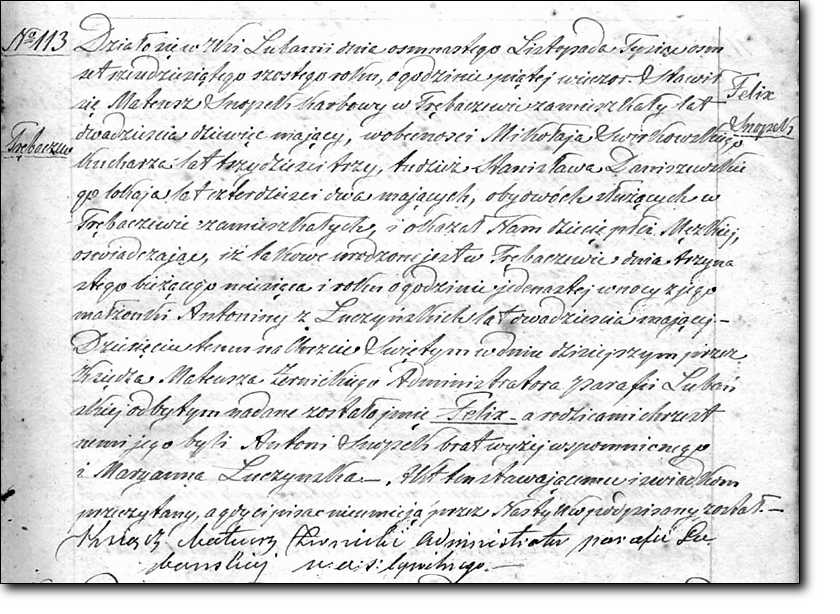 No 113
Trębaczew
Felix
Snopek
Działo się w Wsi Lubanii dnia osmnastego Listopada Tysiąc osm
set sześdziesiątego szostego roku, o godzinie piątej wieczor. Stawił
się Mateusz Snopek karbowy w Trębaczewie zamieszkały lat
dwadzieścia dziewięć mający, w obecności Mikołaja Swirkowskiego
kucharza lat trzydzieści trzy, tudzież Stanisława Daniszewskie
go lokaja lat czterdzieści dwa mających, obydwóch służących w
Trębaczewie zamieszkałych, i okazał Nam dziecię płci Męzkiej,
oswiadczając, iż takowe urodzone jest w Trębaczewie dnia trzyna
stego bieżącego miesiąca i roku o godzinie jedenastej w nocy z jego
małżonki Antoniny z Luczyńskich lat dwadzieścia mającej –
Dziecięciu temu na Chrzcie Swiętym w dniu dzisiejszym przez
Xsiędza Mateusza Zernickiego Administratora parafii Lubań
skiej odbytym nadane zostało jmie Felix – a rodzicami chrzest
nemi jego byli Antoni Snopek brat wyżej wspomnionego
i Maryanna Luczynska –. Akt ten stawającemu i swiadkom
przeczytany, a gdy ci pisac nieumieją przez Nas tylko podpisany został. –
Ksiądz Mateusz Zernicki Administrator parafii Lu
banskiej u. a. s. cywilnego. –